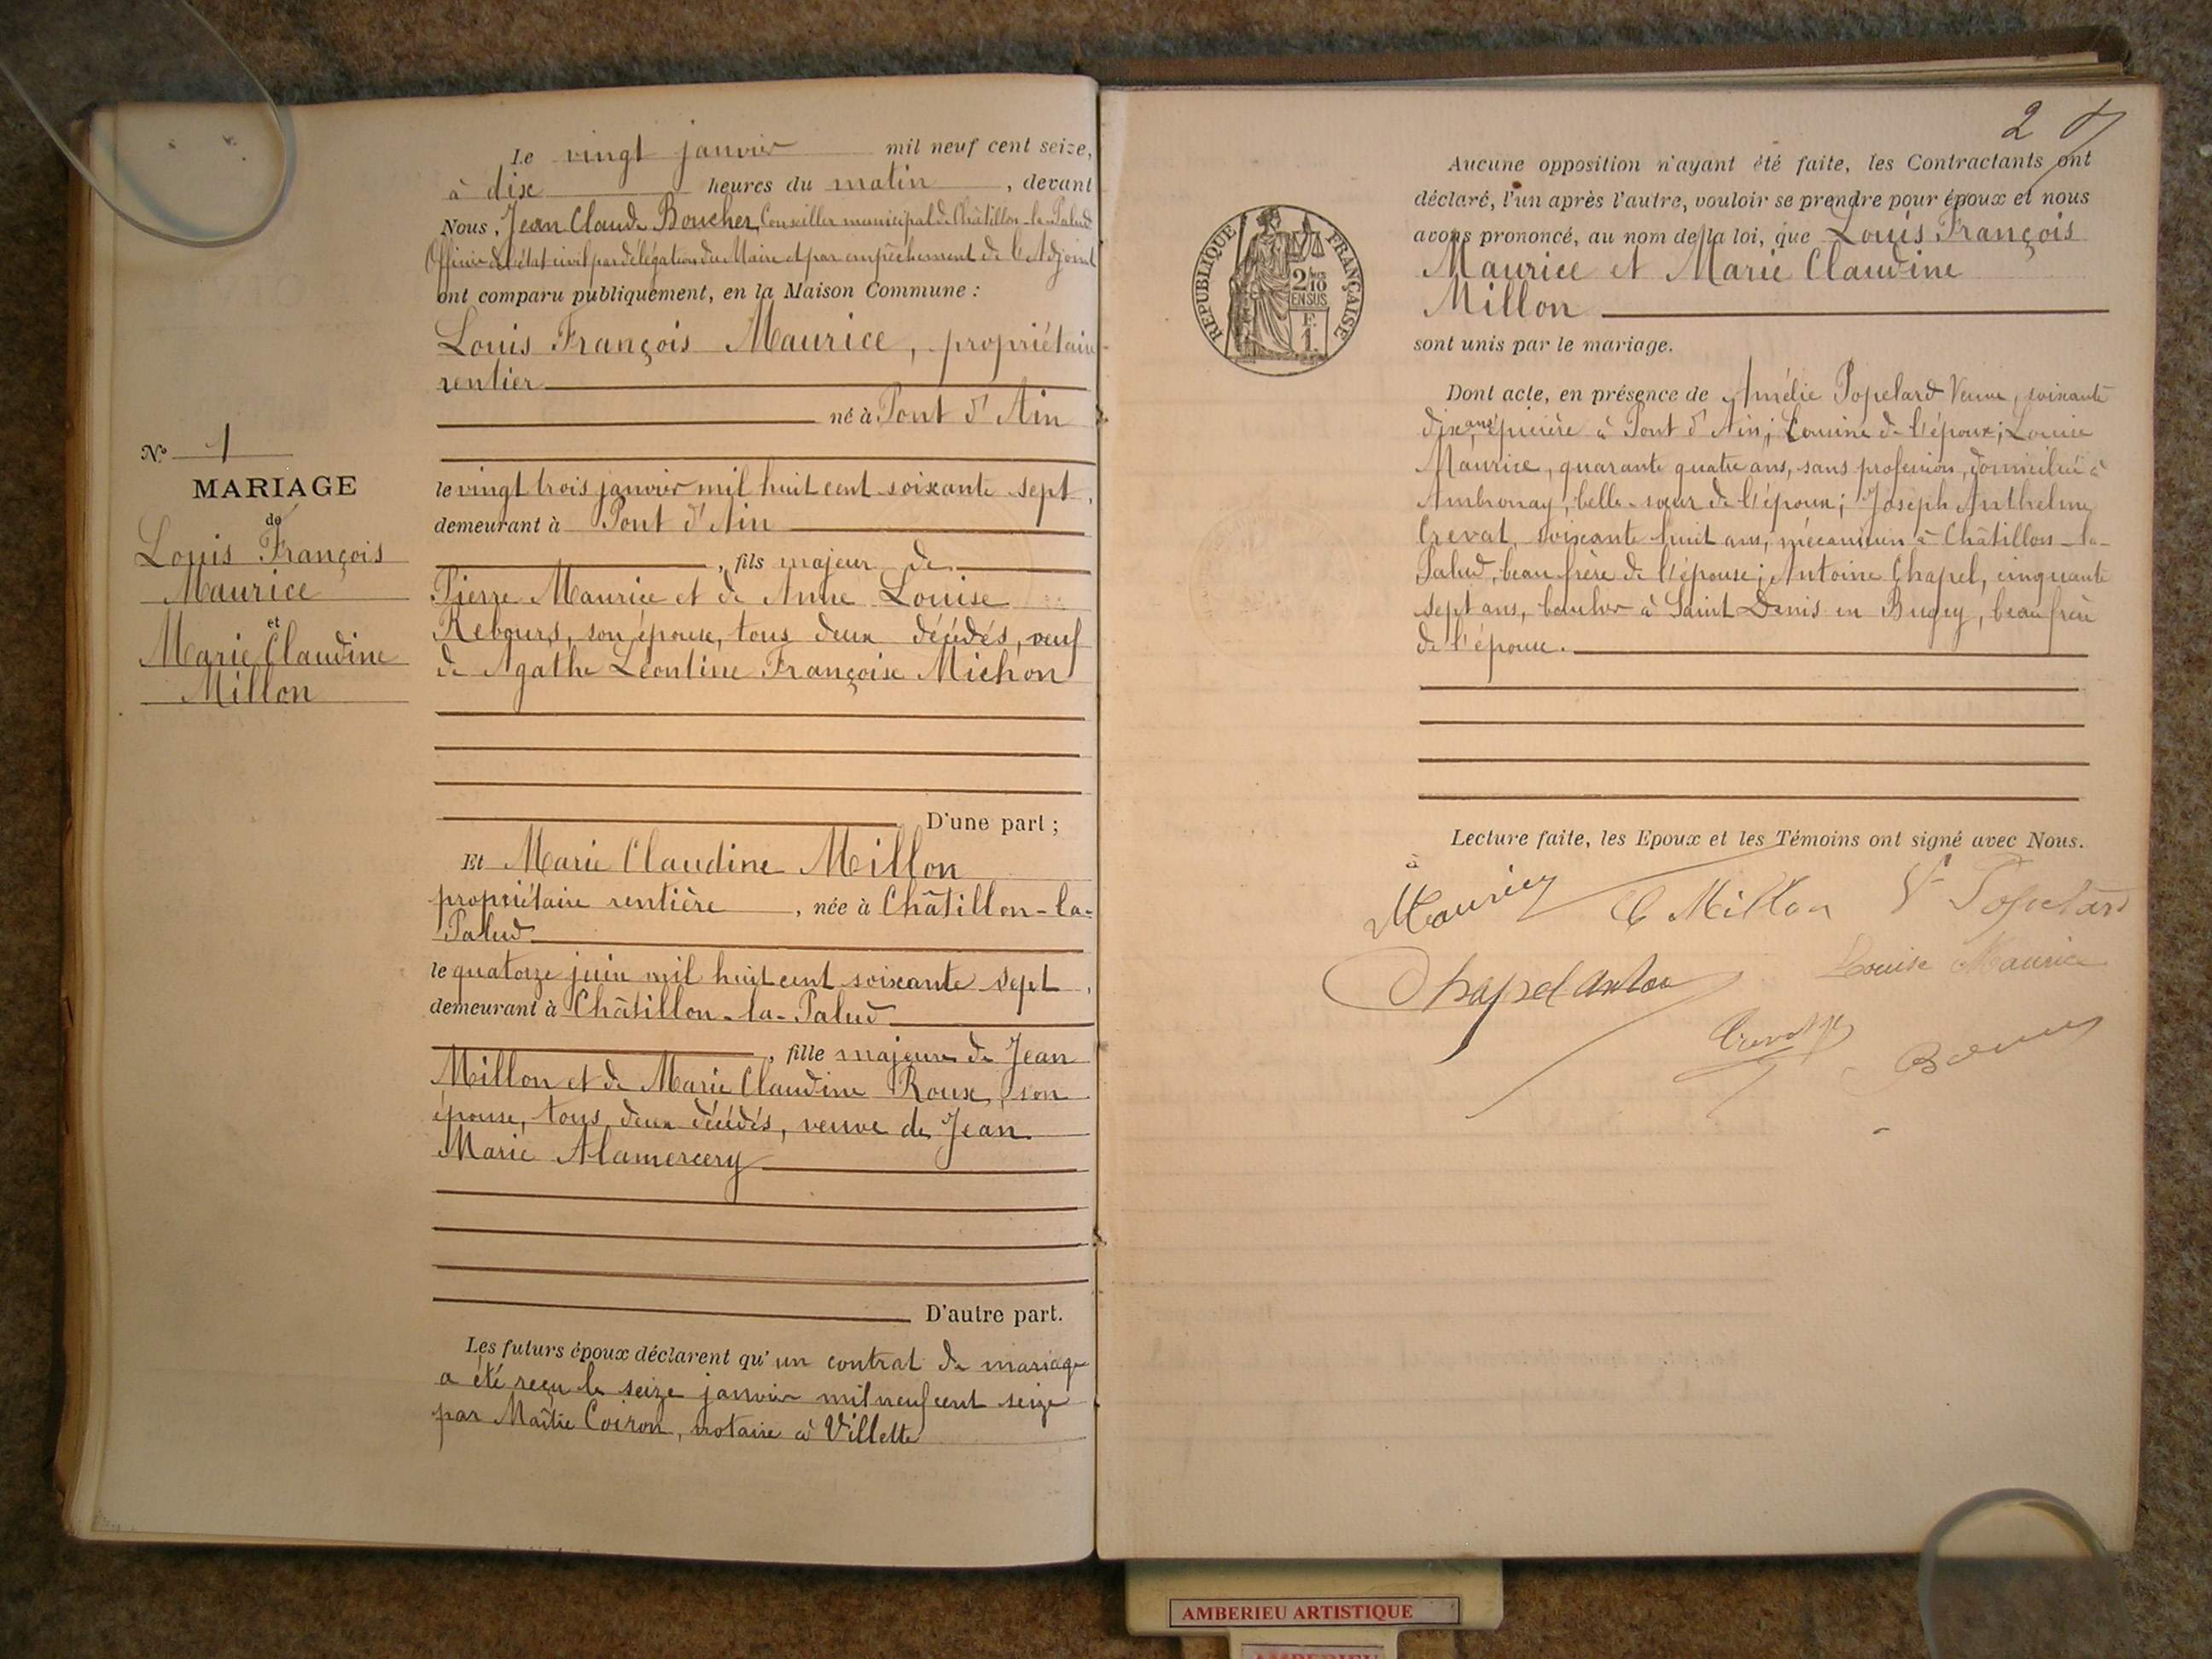 Le vingt janvier mil neuf cent seize,
à dix heures du matin, devant
Nous, Jean Claude Boucher, Conseiller municipal de Châtillon-la-Palud
Officier de l'état civil par délégation du Maire et par empêchement de l'Adjoint
ont comparu publiquement, en la Maison Commune :
Louis François Maurice, propriétaire
rentier
né à Pont d'Ain
le vingt trois janvier mil huit cent soixante sept,
demeurant à Pont d'Ain
, fils majeur de
Pierre Maurice et de Anne Louise
Rebours, son épouse, tous deux décédés, veuf
de Agathe Léontine Françoise Michon
D'une part ;
Et Marie Claudine Millon
propriétaire rentière, née à Châtillon-la-
Palud
le quatorze juin mil huit cent soixante sept,
demeurant à Châtillon-la-Palud
, fille majeure de Jean
Millon et de Marie Claudine Roux, son
épouse, tous deux décédés, veuve de Jean
Marie Alamercery
D'autre part.
Les futurs époux déclarent qu'un contrat de mariage
a été reçu le seize janvier mil neuf cent seize
par Maître Coiron, notaire à Villette
No 1
MARIAGE
de
Louis François
Maurice
et
Marie Claudine
Millon
2
Aucune opposition n'ayant été faite, les Contractants ont
déclaré, l'un après l'autre, vouloir se prendre pour époux et nous
avons prononcé, au nom de la loi, que Louis François
Maurice et Marie Claudine
Millon
sont unis par le mariage.
RÉPUBLIQUE FRANÇAISE
2/10
EN SUS
F.
1.
Dont acte, en présence de Amélie Popelard Veuve, soixante
dix ans, épicière à Pont d'Ain; Cousine de l'époux; Louise
Maurice, quarante quatre ans, sans profession, domiciliée à
Ambronay, belle-sœur de l'époux; Joseph Anthelme
Crevat, soixante huit ans, mécanicien à Châtillon-la-
Palud, beau frère de l'épouse; Antoine Chapel, cinquante
sept ans, boucher à Saint Denis en Bugey, beau frère
de l'épouse.
Lecture faite, les Epoux et les Témoins ont signé avec Nous.
à
Maurice C Millon Ve Popelard
Chapel Antoi Louise Maurice
Crevat
AMBERIEU ARTISTIQUE
AMBERIEU